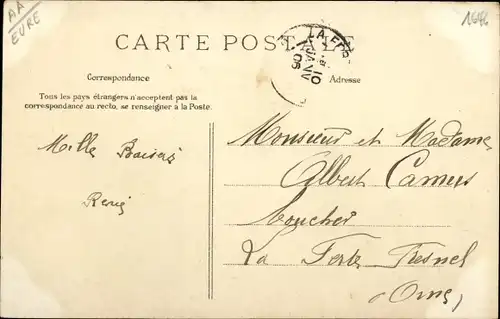 AA
EURE
1646
CARTE POSTALE
LA FER
10
JANV
06
Correspondance
Adresse
Tous les pays étrangers n'acceptent pas la
correspondance au recto, se renseigner à la Poste.
Mille Baisers
Monsieur et Madame
Albert Camus
boucher
La Ferte Fresnel
Orne